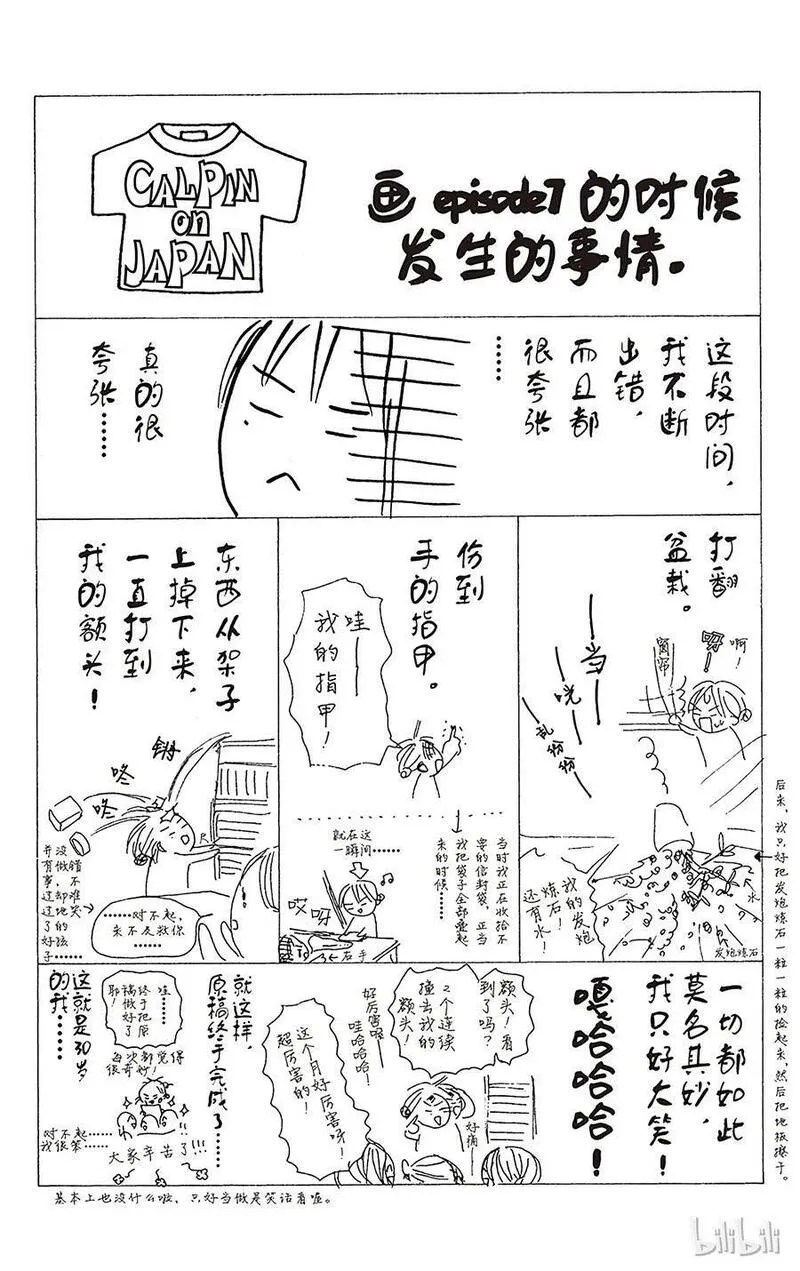 CALPIN
on
JAPAN
画episode7的时候
发生的事情。
这段时间，
我不断
出错，
而且都
很夸张
……
真的很
夸张……
打翻
盆栽。
啊！
呀！
窗帘
当——
哐——
乱纷纷
我的发炮
炼石！
还有水！
水
发炮炼石
后来，我只好把发炮炼石一粒一粒的捡起来，然后把地板擦干。
伤到
手的指甲。
哇——
我的指甲！
当时我正在收拾不
要的信封袋，正当
我把袋子全部叠起
来的时候……
就在这
一瞬间……
哎呀
右手
东西从架子
上掉下来，
一直打到
我的额头！
锵
咚
咚
尺
并没
有做错
事，不
过却难
过地哭
了的
好孩
子……
……对不起，
来不及救你……
一切都如此
莫名其妙，
我只好大笑！
嘎哈哈哈！
额头！看
到了吗？
2个连续
撞击我的
额头！
好厉害喔——
哇哈哈哈！
好痛
这个月好厉害呀！
超厉害的！
就这样，
原稿终于完成了……
哇——
终于把原
稿做好了
耶！
每次都觉得
很奇妙！
对不起……
我很笨……
大家辛苦了!!!
这就是30岁
的我……
基本上也没什么啦，只好当做是笑话看喔。
bilibili